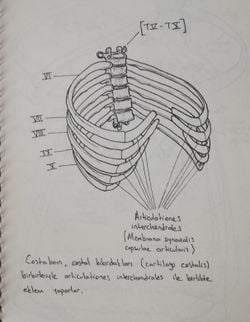 [TV-TX]
VI
VII
VIII
IX
X
Articulationes
interchondrales
(Membrana synovialis
capsulae articularis)
Costaların, costal kıkırdakları (cartilago costalis)
birbirleriyle articulationes interchondrales ile birlikte
eklem yaparlar.